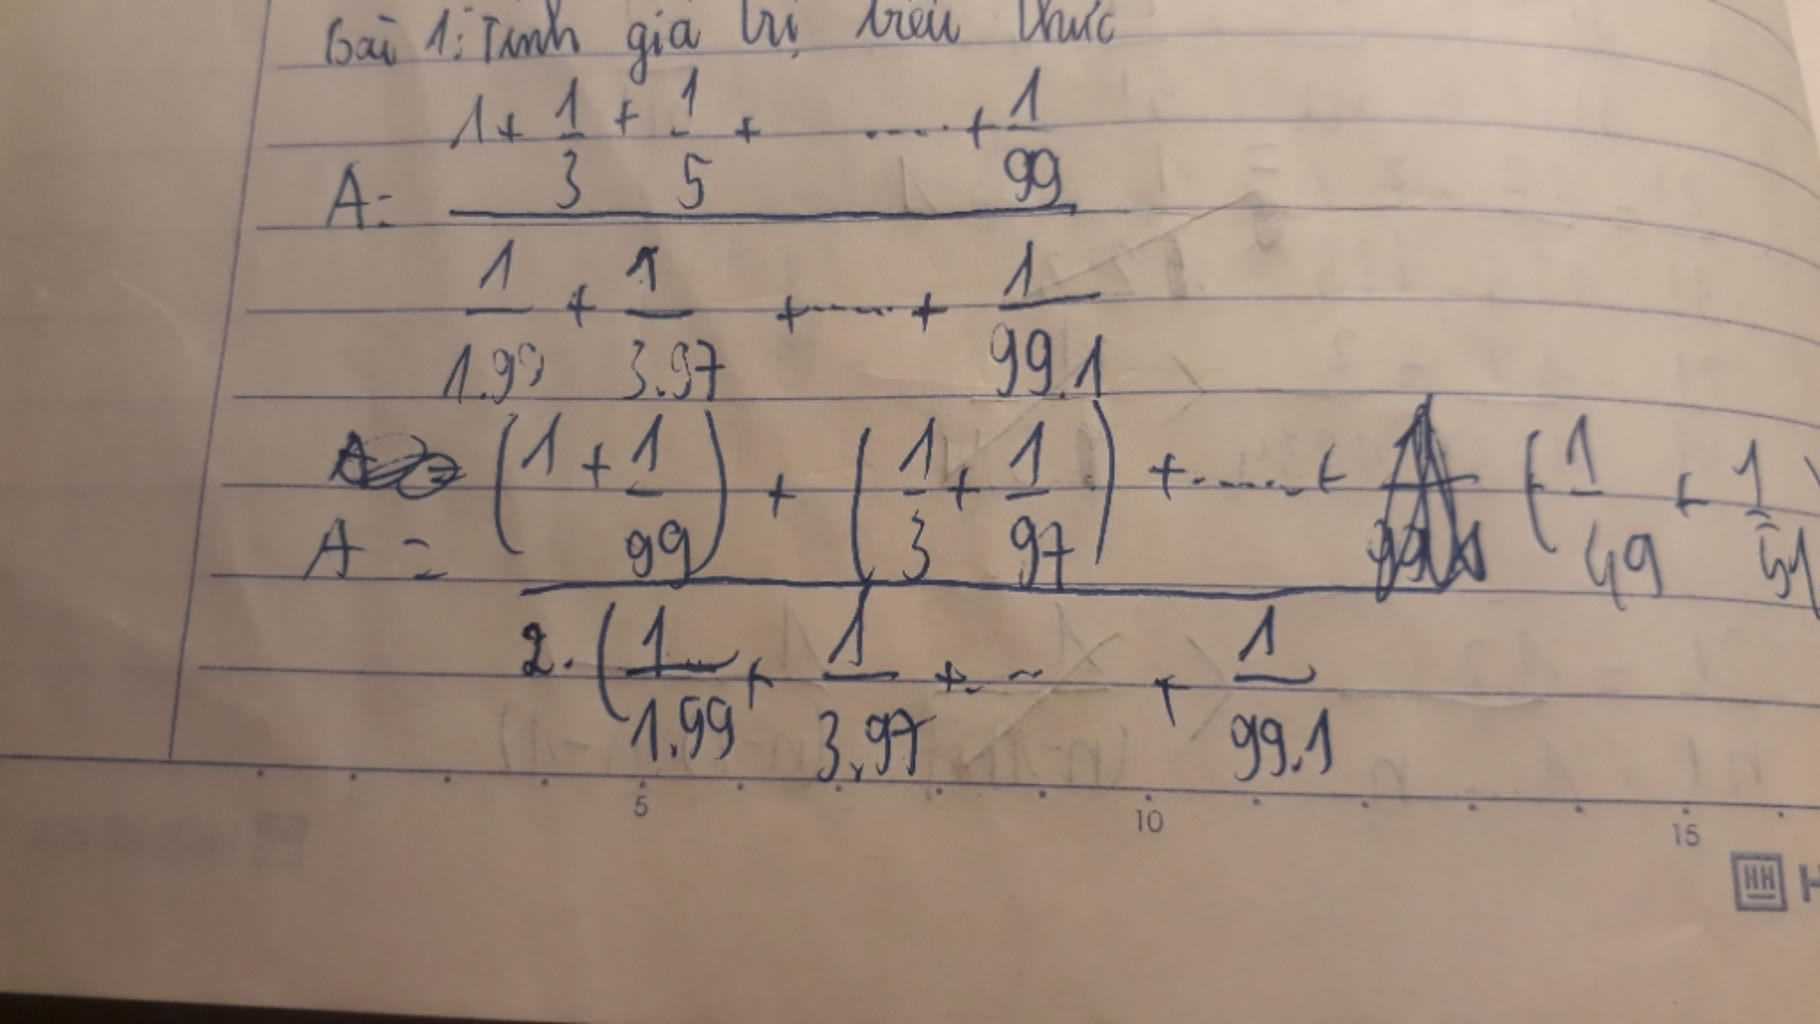 Bài 1: Tính giá trị biểu thức
A = (1 + 1/3 + 1/5 + ..... + 1/99) / (1/1.99 + 1/3.97 + ..... + 1/99.1)
A = ((1 + 1/99) + (1/3 + 1/97) + ..... + (1/49 + 1/51)) / (2.(1/1.99 + 1/3.97 + ... + 1/99.1
5 10 15
HH H